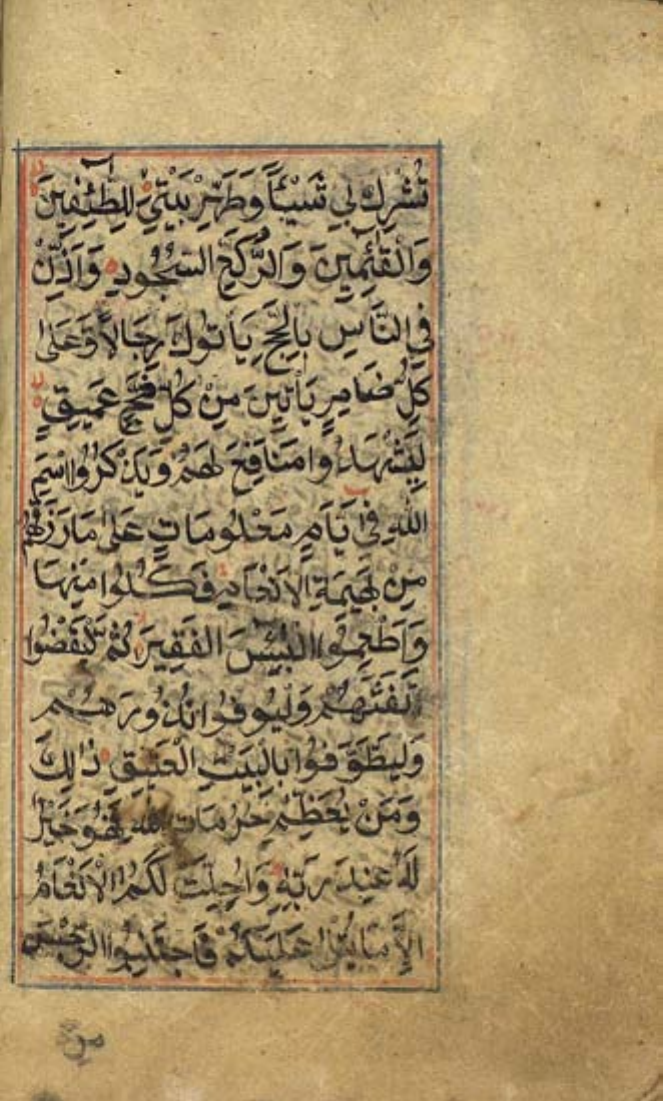 تُشْرِك بِي شَيْئًا وَطَهِّرْ بَيْتِيَ لِلطَّائِفِينَ
وَالْقَائِمِينَ وَالرُّكَّعِ السُّجُودِ وَاَذِّنْ
فِي النَّاسِ بِالْحَجِّ يَأْتُوكَ رِجَالًا وَعَلَىٰ
كُلِّ ضَامِرٍ يَأْتِينَ مِنْ كُلِّ فَجٍّ عَمِيقٍ
لِيَشْهَدُوا مَنَافِعَ لَهُمْ وَيَذْكُرُوا اسْمَ
اللّٰهِ فِي اَيَّامٍ مَعْلُومَاتٍ عَلَىٰ مَارَزَقَهُمْ
مِنْ بَهِيمَةِ الْاَنْعَامِ فَكُلُوا مِنْهَا
وَاَطْعِمُوا الْبَئِسَ الْفَقِيرَ ثُمَّ لْيَقْضُوا
تَفَثَهُمْ وَلْيُوفُوا نُذُورَهُمْ
وَلْيَطَّوَّفُوا بِالْبَيْتِ الْعَتِيقِ ذٰلِكَ
وَمَنْ يُعَظِّمْ حُرُمَاتِ اللّٰهِ فَهُوَ خَيْرٌ
لَهُ عِنْدَ رَبِّهِ وَاُحِلَّتْ لَكُمُ الْاَنْعَامُ
اِلَّا مَا يُتْلَىٰ عَلَيْكُمْ فَاجْتَنِبُوا الرِّجْسَ
مِنَ